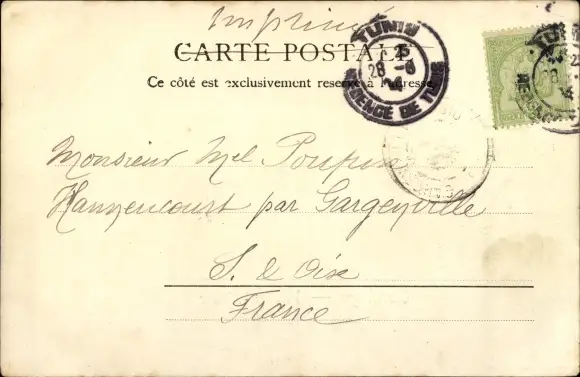 Imprimé
CARTE POSTALE
Ce côté est exclusivement reservé à l'adresse
TUNIS
28 -6
REGENCE DE TUNIS
Monsieur Mel Poupin
Hanneucourt par Gargenville
S. de Oise
France